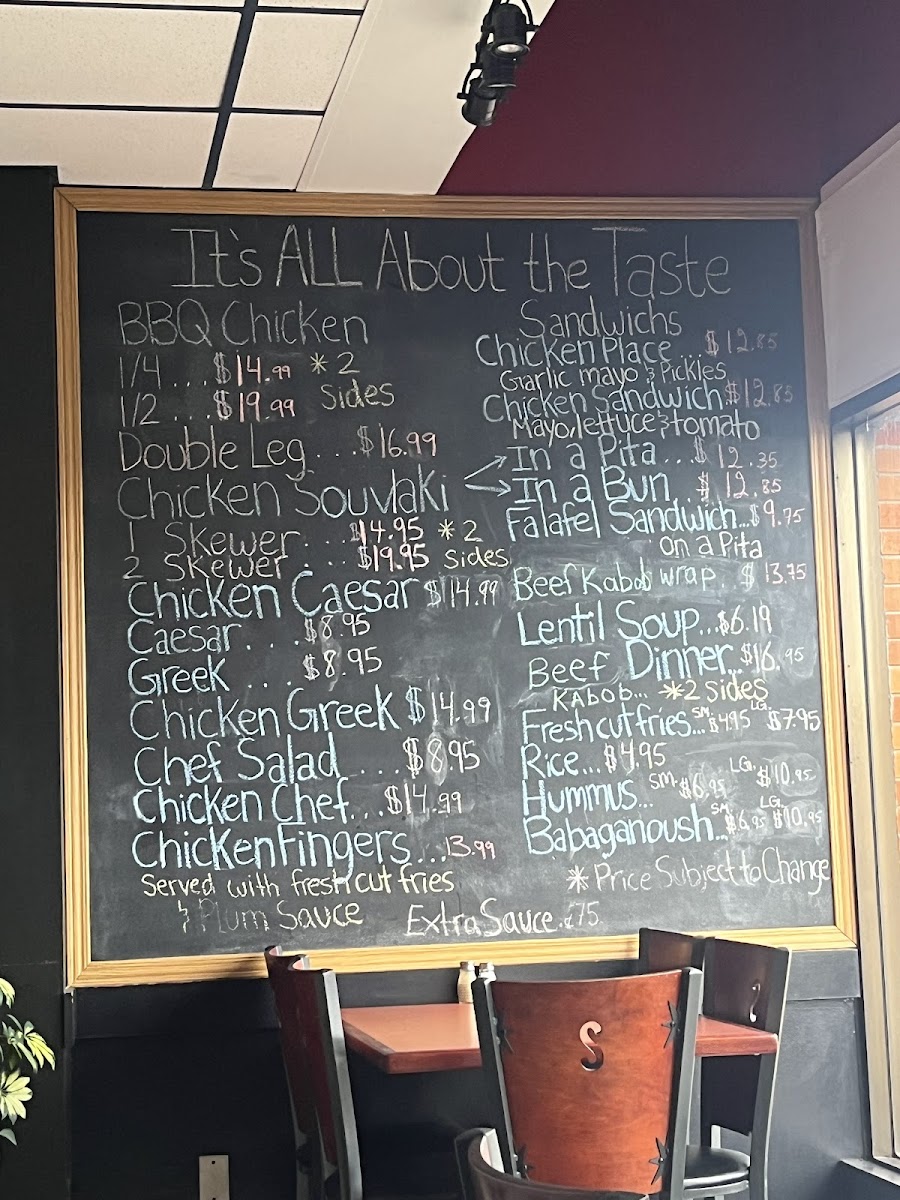 It's ALL About the Taste
BBQ Chicken
1/4 ... $14.99 *2
1/2 ... $19.99 Sides
Double Leg ... $16.99
Chicken Souvlaki
1 Skewer ... $14.95 *2
2 Skewer ... $19.95 sides
Chicken Caesar $14.99
Caesar .... $8.95
Greek .... $8.95
Chicken Greek $14.99
Chef Salad .... $8.95
Chicken Chef... $14.99
Chicken Fingers... 13.99
Served with fresh cut fries
& Plum Sauce Extra Sauce .¢75
Sandwichs
Chicken Place ... $12.85
Garlic mayo & Pickles
Chicken Sandwich $12.85
Mayo, lettuce & tomato
In a Pita ... $12.35
In a Bun.. $12.85
Falafel Sandwich... $9.75
on a Pita
Beef Kabob wrap. $13.75
Lentil Soup... $6.19
Beef Dinner... $16.95
KAbob... *2 sides
Fresh cut fries... SM. $4.95 LG. $7.95
Rice... $4.95
Hummus... SM. $6.95 LG. $10.95
Babaganoush... SM. $6.95 LG. $10.95
* Price Subject to Change
S